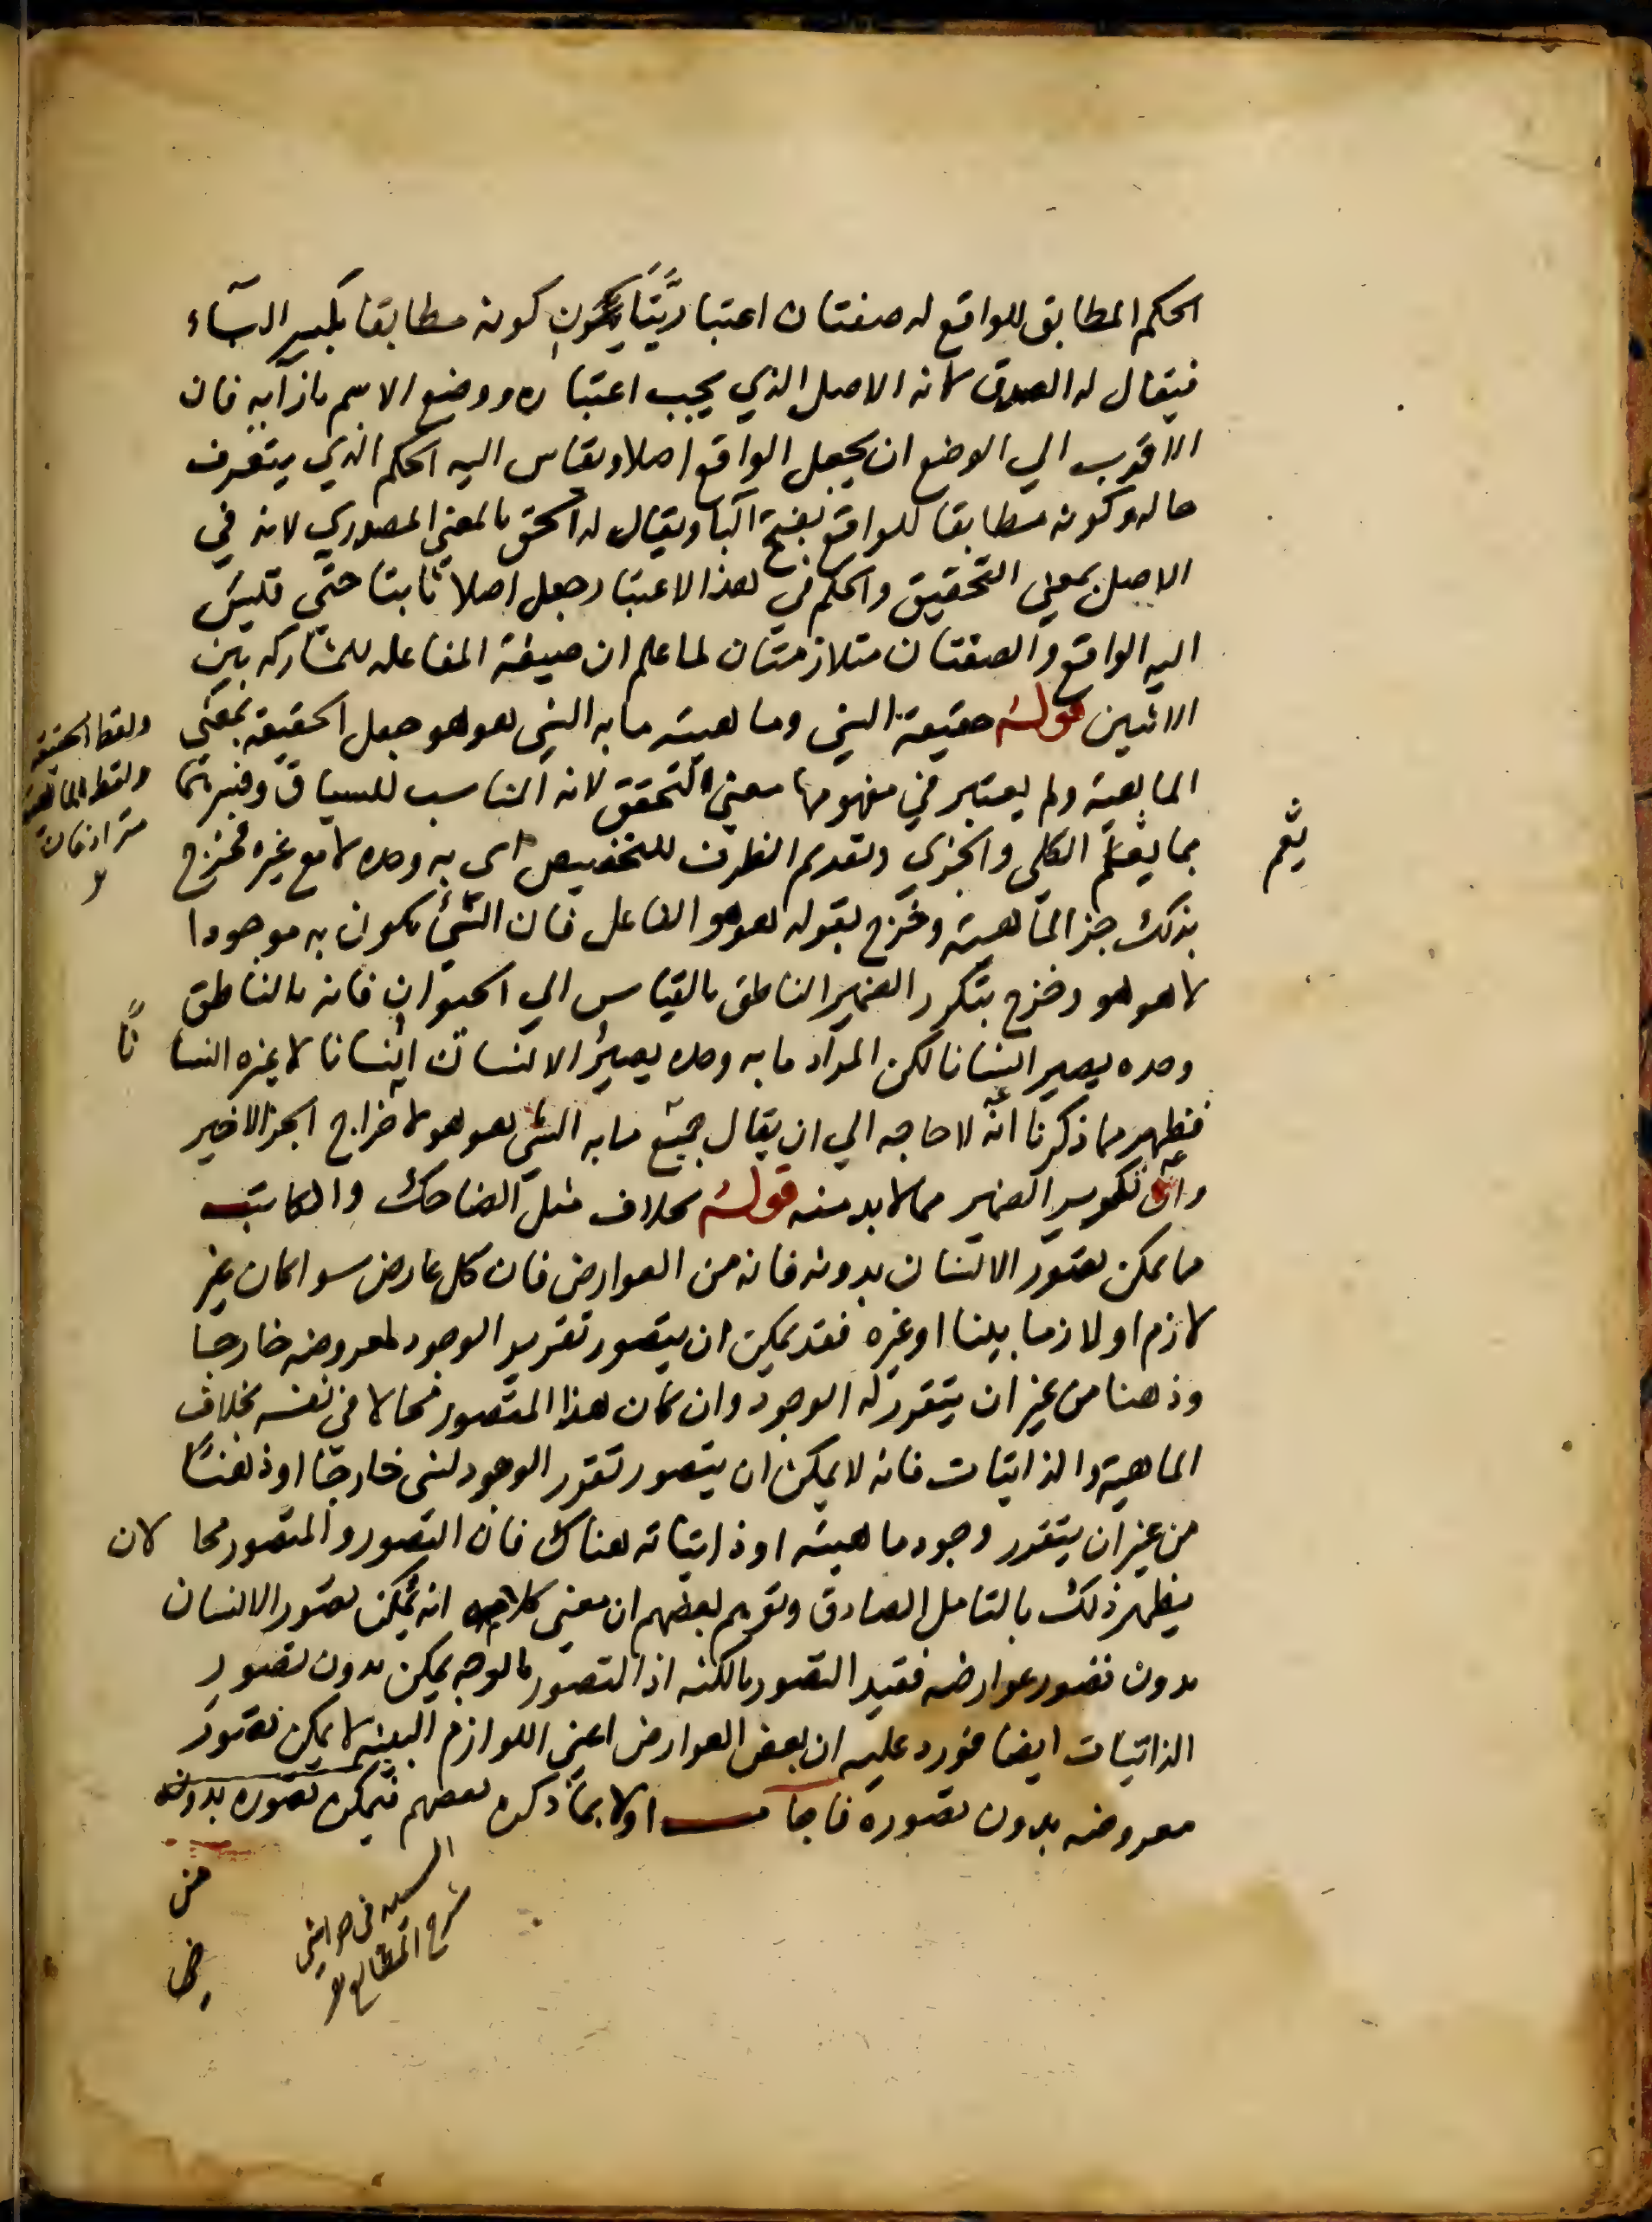 الحكم المطابق للواقع له صفتان اعتباريتان كونه مطابقا بكسر البآء
فيقال له الصدق لانه الاصل الذي يجب اعتباره ووضع الاسم بازآيه فان
الاقرب الي الوضع ان يجعل الواقع اصلا ويقاس اليه الحكم الذي يتعرف
حاله وكونه مطابقا للواقع بفتح البا ويقال له الحق بالمعني المصدري لانه في
الاصل بمعني التحقيق والحكم في هذا الاعتبار جعل اصلا ثابتا حتي قليس
اليه الواقع والصفتان متلازمتان لما علم ان صيغة المفاعله للمشاركه بين
الاثنين قوله حقيقة الشي وماهيته ما به الشي هو هو جعل الحقيقه بمعني
الماهية ولم يعتبر في مفهومها معني التحقق لانه المناسب للسياق وفسرهما
بما يعم الكلي والجزي وتقديم الظرف للتخصيص اي به وحده لا مع غيره فخرج
بذلك جز الماهيته وخرج بقوله هو هو الفاعل فان الشي يكون به موجودا
لا هو هو وخرج بتكرر الضمير الناطق بالقياس الي الحيوان فانه بالناطق
وحده يصير انسانا لكن المراد ما به وحده يصير الانسان انسانا لا غيره انسانا
فظهر مما ذكرنا انه لا حاجه الي ان يقال جميع ما به الشي هو هو لاخراج الجز الاخير
وان تكوير الضمير مما لا بد منه قوله بخلاف مثل الضاحك والكاتب
مما يمكن تصور الانسان بدونه فانه من العوارض فان كل عارض سوا كان غير
لازم او لازما بينا او غيره فقد يمكن ان يتصور تقرير الوجود لمعروضه خارجا
وذهنا من غير ان يتقرر له الوجود وان كان هذا المتصور محالا في نفسه بخلاف
الماهية والذاتيات فانه لا يمكن ان يتصور تقرر الوجود لشي خارجا او ذهنا
من غير ان يتقرر وجود ماهيته او ذاتياته هناك فان التصور والمتصور محالان
يظهر ذلك بالتامل الصادق وتوهم بعضهم ان معني كلامه انه يمكن تصور الانسان
بدون تصور عوارضه فقيد التصور بالكنه اذ التصور بالوجه يمكن بدون تصور
الذاتيات ايضا فورد عليه ان بعض العوارض اعني اللوازم البينه لا يمكن تصور
معروضه بدون تصوره فاجاب اولا بما ذكره بعضهم فيمكن تصوره بدونه
ولفظ الحقيقه
ولفظ الماهية
مترادفان
يعم
السيد في حواشي
شرح المطالع